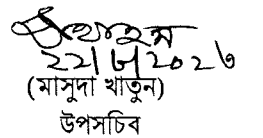 ২২/৮/২০২৩
(মাসুদা খাতুন)
উপসচিব